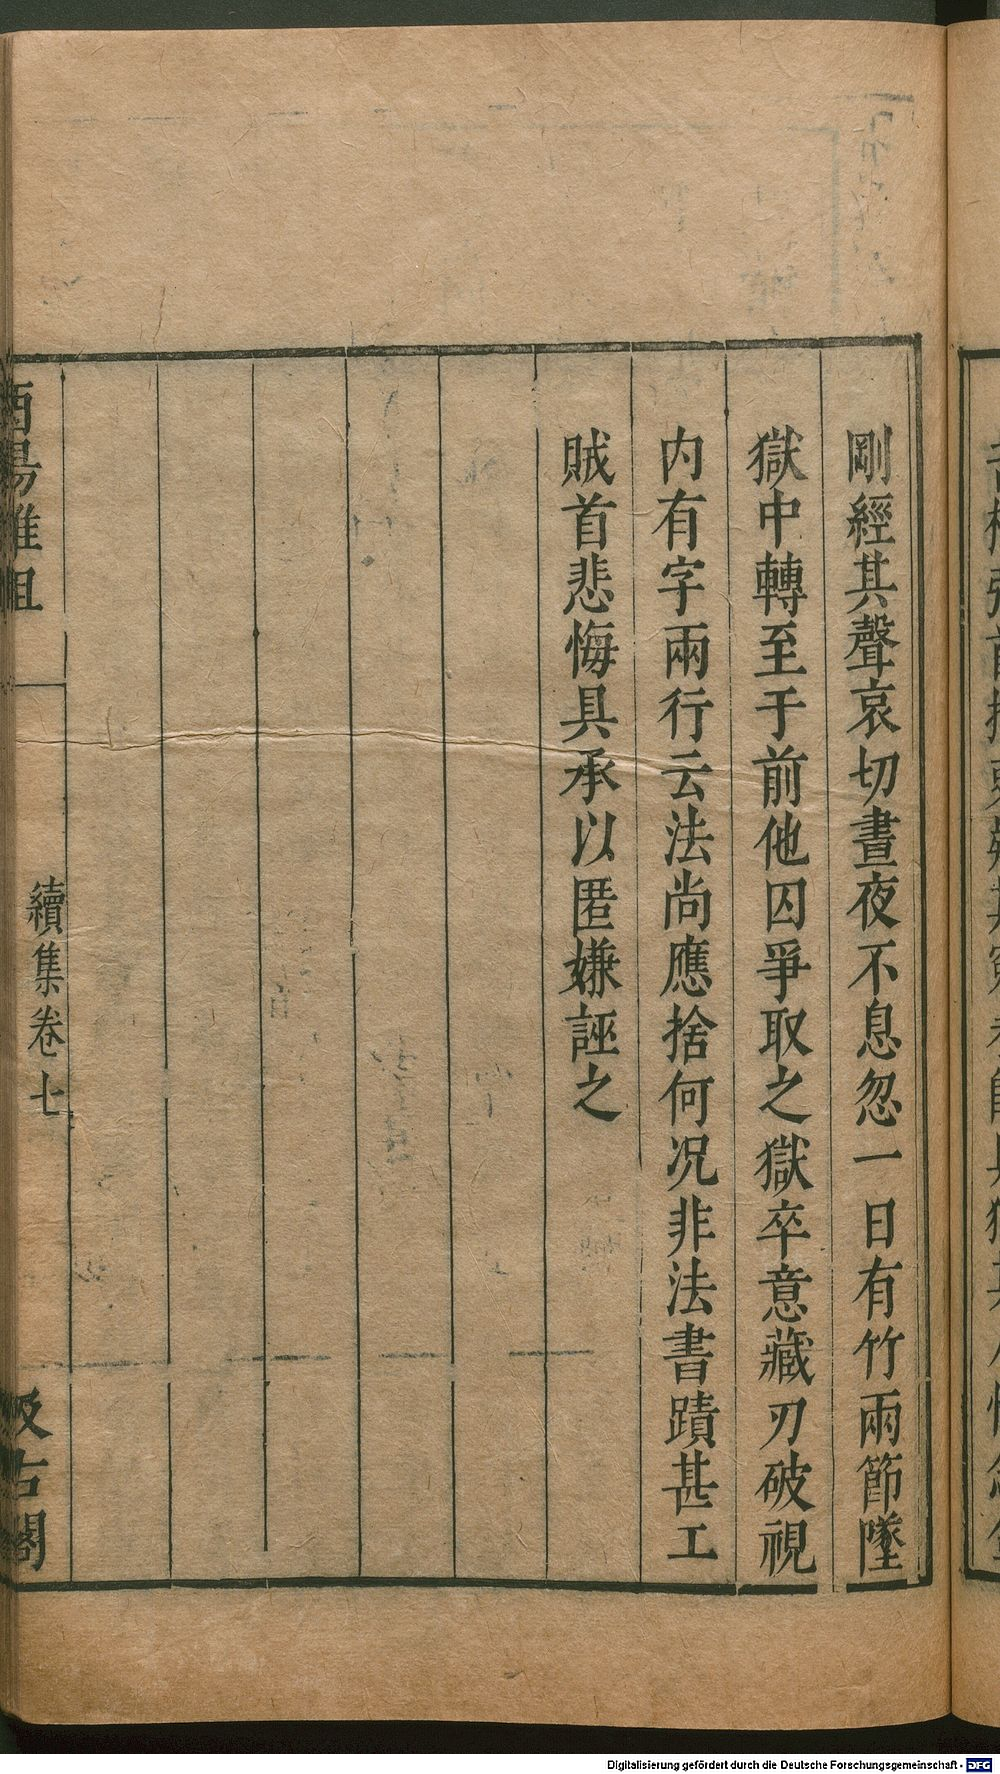 剛經其聲哀切晝夜不息忽一日有竹兩節墜
獄中轉至于前他囚爭取之獄卒意藏刃破視
内有字兩行云法尚應捨何況非法書蹟甚工
賊首悲悔具承以匿嫌誣之
酉陽雜俎
續集卷七
汲古閣
Digitalisierung gefördert durch die Deutsche Forschungsgemeinschaft - DFG